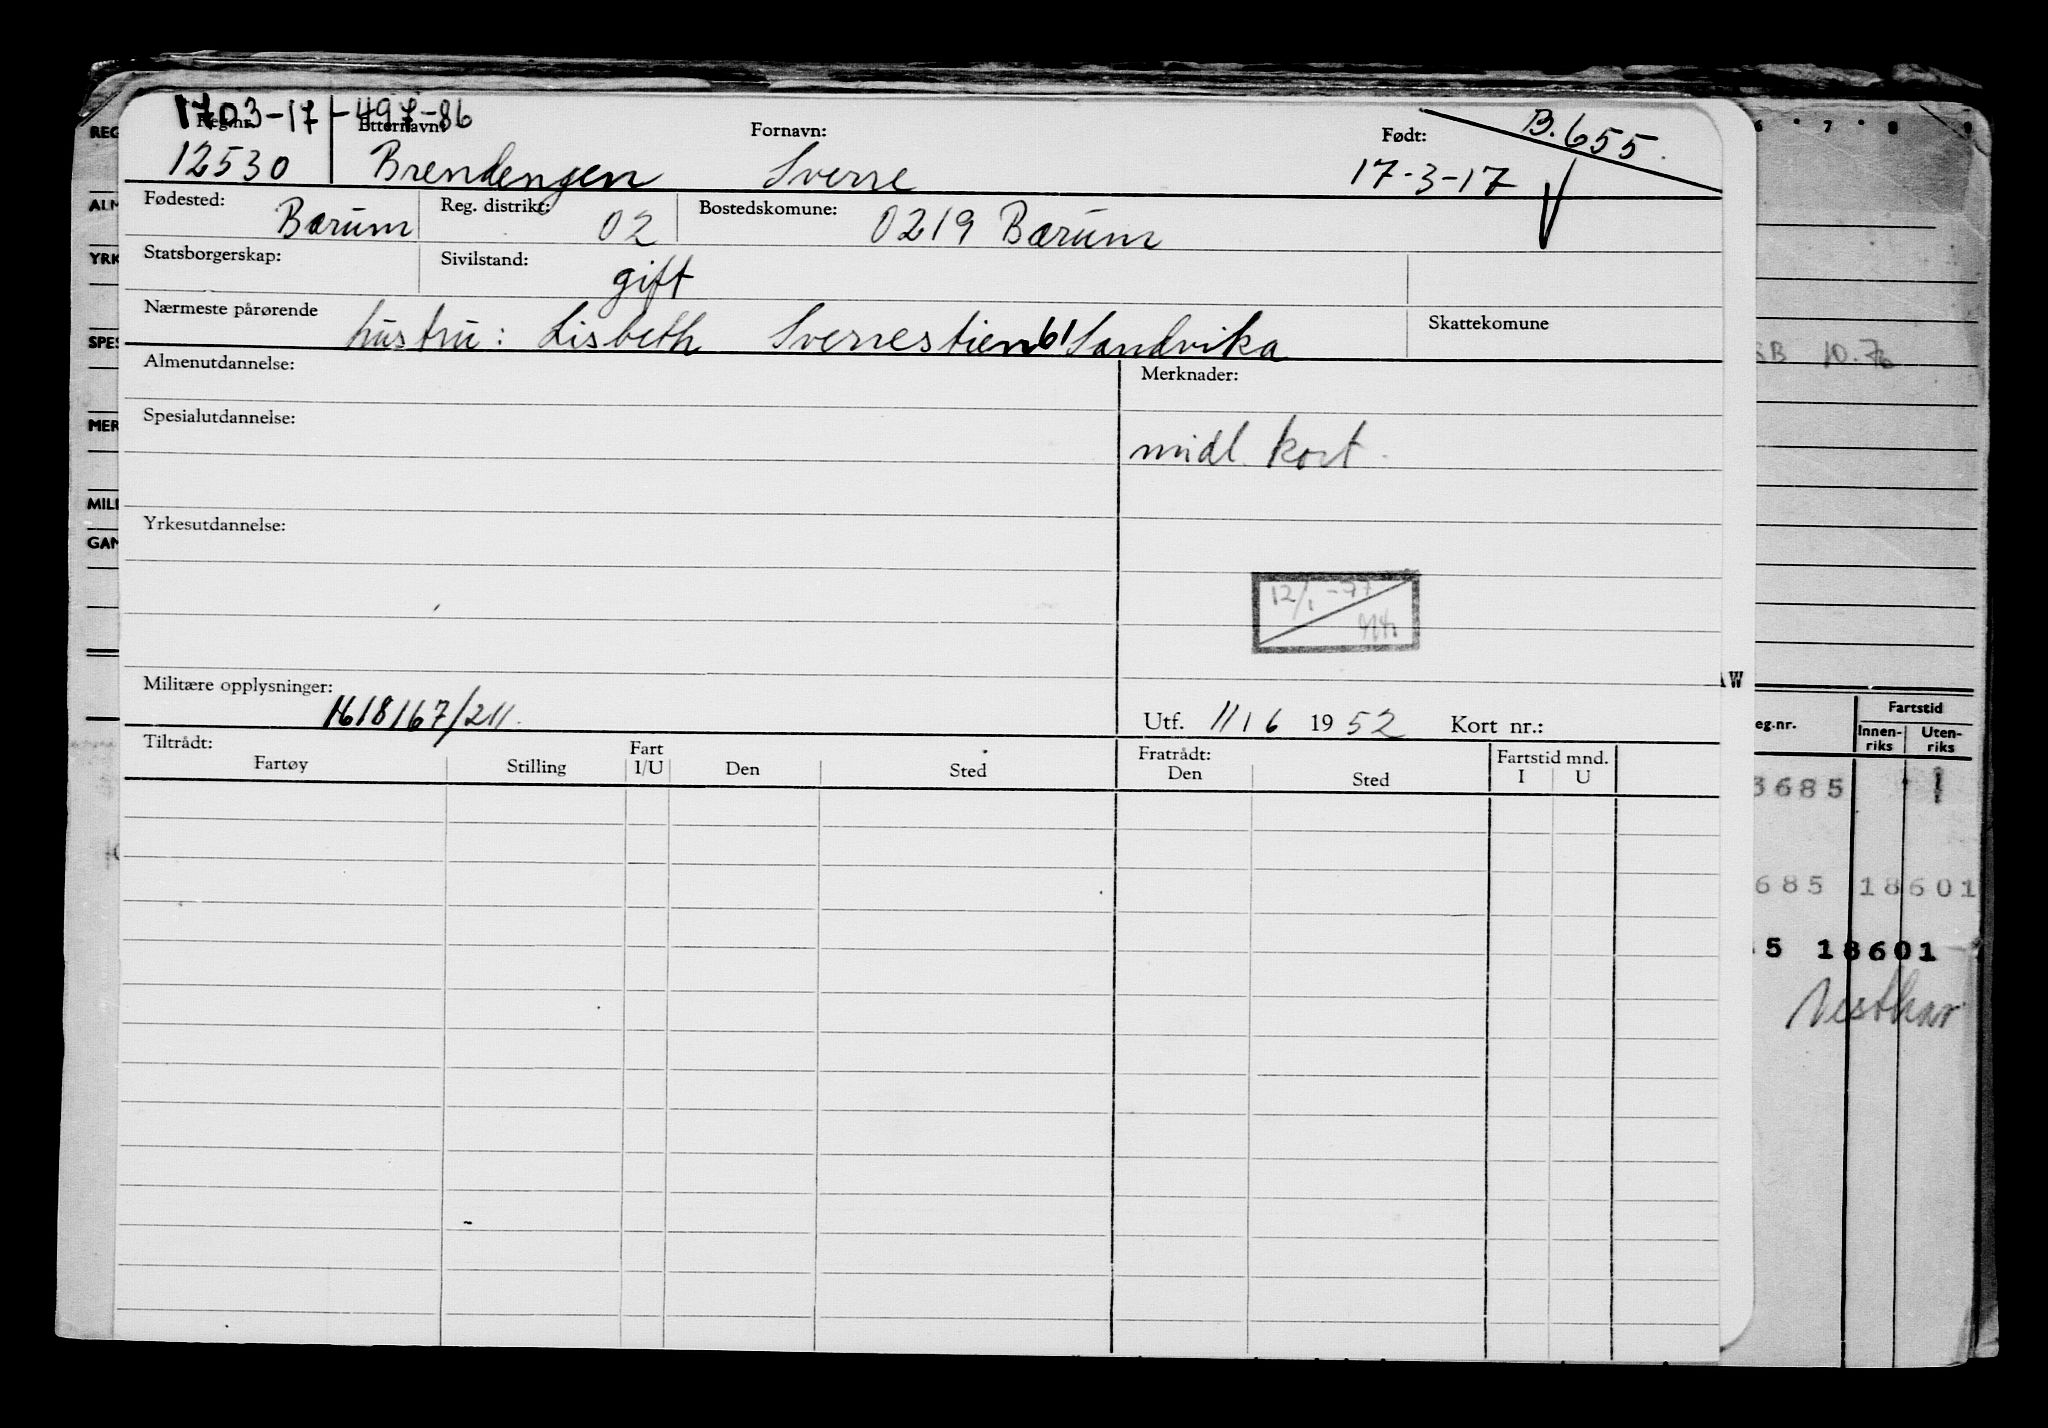 1703-17-497-86
B. 655
Reg.nr. Etternavn: Fornavn: Født:
12530 Brendengen Sverre 17-3-17
Fødested: Bærum Reg. distrikt: 02 Bostedskomune: 0219 Bærum
Statsborgerskap: Sivilstand: gift
Nærmeste pårørende hustru: Lisbeth Sverrestien 61 Sandvika Skattekomune
Almenutdannelse: Merknader:
Spesialutdannelse: midl. kort.
Yrkesutdannelse:
12/1-77
Militære opplysninger: 1618167/211. Utf. 11/6 1952 Kort nr.:
Tiltrådt: Fratrådt:
Fartøy Stilling Fart I/U Den Sted Den Sted Fartstid mnd. I U
REG
ALM
YRK
SPES
MER
MILI
GAN
6 7 8 9
SB 10.76
AW
eg.nr. Fartstid
Innen-riks Uten-riks
3685 1
685 18601
5 18601